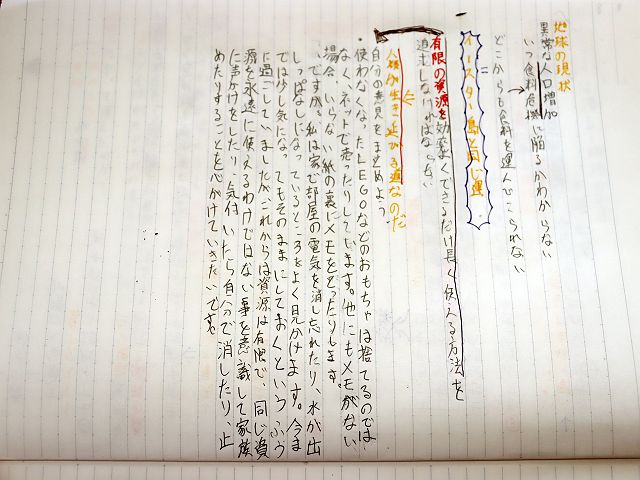 地球の現状
異常な人口増加
いつ食料危機に陥るかわからない
どこからも食料を運んでこられない
イースター島と同じ運
有限の資源を効率よくできるだけ長く使える方法を
追求しなければならない
人類が生き延びる道なのだ
自分の意見をまとめよう
・使わなくなったLEGOなどのおもちゃは捨てるのでは
なく、ネットで売ったりしています。他にもメモがない
場合、いらない紙の裏にメモをとったりします。
いですが、私は家で部屋の電気を消し忘れたり、水が出
しっぱなしになっているところをよく見かけます。今ま
では少し気になってもそのままにしておくというふう
に過ごしていましたが、これからは資源は有限で、同じ資
源を永遠に使えるわけではない事を意識して家族
に声かけをしたり、気付いたら自分で消したり、止
めたりすることを心がけていきたいです。